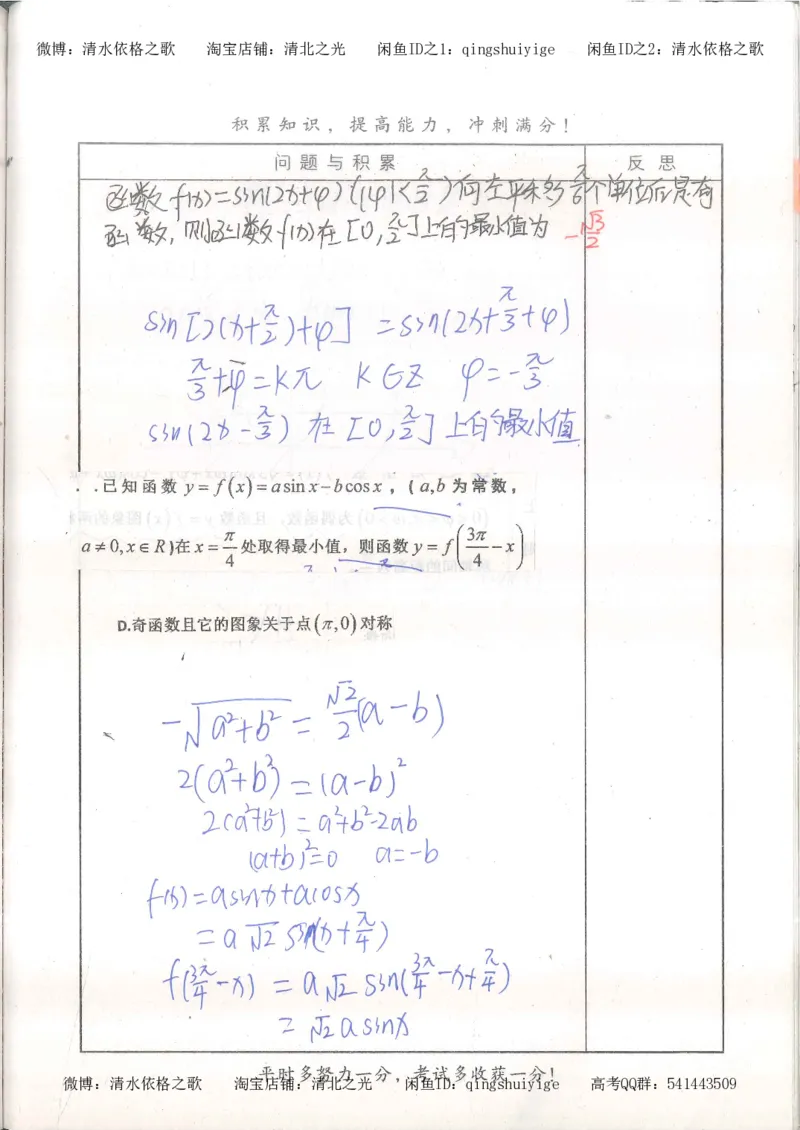 微博：清水依格之歌 淘宝店铺：清北之光 闲鱼ID之1：qingshuiyige 闲鱼ID之2：清水依格之歌
积累知识，提高能力，冲刺满分！
问题与积累 反思
函数f(x)=sin(2x+φ)(|φ|<π/2)向左平移π/6个单位后是奇
函数,则函数f(x)在[0,π/2]上的最小值为 -√3/2
sin[2(x+π/2)+φ] =sin(2x+π/3+φ)
π/3+φ=kπ k∈Z φ=-π/3
sin(2x-π/3) 在[0,π/2]上的最小值
..已知函数 y=f(x)=asinx-bcosx，(a,b为常数，
a≠0,x∈R)在x=π/4处取得最小值，则函数y=f(3π/4-x)
D.奇函数且它的图象关于点(π,0)对称
-√(a²+b²)=√2/2(a-b)
2(a²+b²)=(a-b)²
2(a²+b²)=a²+b²-2ab
(a+b)²=0 a=-b
f(x)=asinx+acosx
=a√2 sin(x+π/4)
f(3π/4-x)=a√2 sin(3π/4-x+π/4)
=√2asinx
平时多努力一分，考试多收获一分！
微博：清水依格之歌 淘宝店铺：清北之光 闲鱼ID之2：qingshuiyige 高考QQ群：541443509